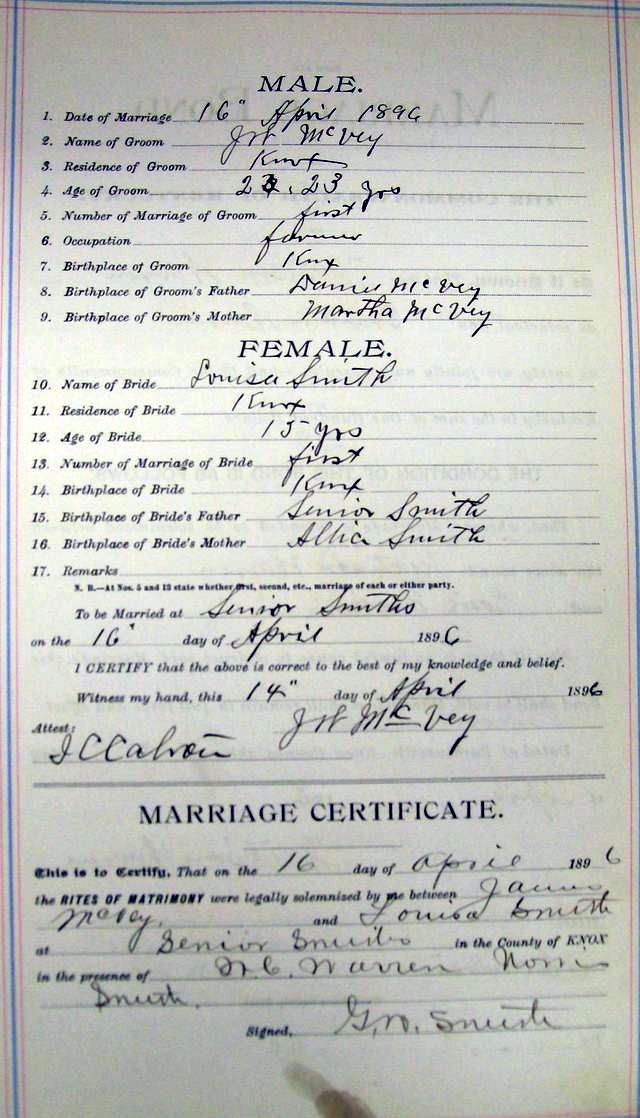 MALE.
1. Date of Marriage 16" April 1896
2. Name of Groom JW McVey
3. Residence of Groom Knox
4. Age of Groom 23 yrs
5. Number of Marriage of Groom first
6. Occupation farmer
7. Birthplace of Groom Knox
8. Birthplace of Groom's Father Daniel McVey
9. Birthplace of Groom's Mother Martha McVey
FEMALE.
10. Name of Bride Louisa Smith
11. Residence of Bride Knox
12. Age of Bride 15 yrs
13. Number of Marriage of Bride first
14. Birthplace of Bride Knox
15. Birthplace of Bride's Father Senior Smith
16. Birthplace of Bride's Mother Allie Smith
17. Remarks
N. B.—At Nos. 5 and 13 state whether first, second, etc., marriage of each or either party.
To be Married at Senior Smiths
on the 16" day of April 1896
I CERTIFY that the above is correct to the best of my knowledge and belief.
Witness my hand, this 14" day of April 1896
JW McVey
Attest:
MARRIAGE CERTIFICATE.
This is to Certify, That on the 16 day of April 1896
the RITES OF MATRIMONY were legally solemnized by me between James
McVey. and Louisa Smith
at Senior Smiths in the County of KNOX
in the presence of W.C. Warren Norris
Smith.
Signed, G.W. Smith